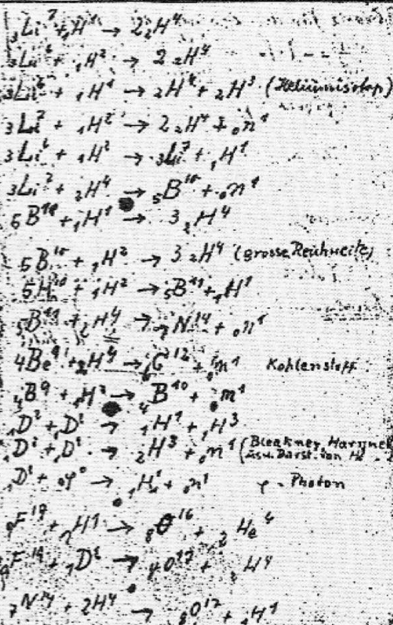 ₃Li⁷ + ₁H¹ → 2 ₂H⁴
₃Li⁶ + ₁H² → 2 ₂H⁴
₃Li⁶ + ₁H¹ → ₂H⁴ + ₂H³ (Heliumisotop)
₃Li⁷ + ₁H² → 2 ₂H⁴ + ₀n¹
₃Li⁶ + ₁H² → ₃Li⁷ + ₁H¹
₃Li⁷ + ₂H⁴ → ₅B¹⁰ + ₀n¹
₅B¹¹ + ₁H¹ → 3 ₂H⁴
₅B¹⁰ + ₁H² → 3 ₂H⁴ (grosse Reichweite)
₅H¹⁰ + ₁H² → ₅B¹¹ + ₁H¹
₅B¹¹ + ₂H⁴ → ₇N¹⁴ + ₀n¹
₄Be⁹ + ₂H⁴ → ₆C¹² + ₀n¹ Kohlenstoff
₄B⁹ + ₁H² → B¹⁰ + ₀n¹
₁D² + ₁D² → ₁H¹ + ₁H³
₁D² + ₁D² → ₂H³ + ₀n¹ (Bleakney, Harnwell
usw. Darst. von
₁D² + ₀φ⁰ → ₁H¹ + ₀n¹ φ - Photon
₉F¹⁹ + ₁H¹ → ₈O¹⁶ + ₂He⁴
₉F¹⁹ + ₁D² → ₈O¹⁷ + H⁴
₇N¹⁴ + ₂H⁴ → ₈O¹⁷ + ₁H¹